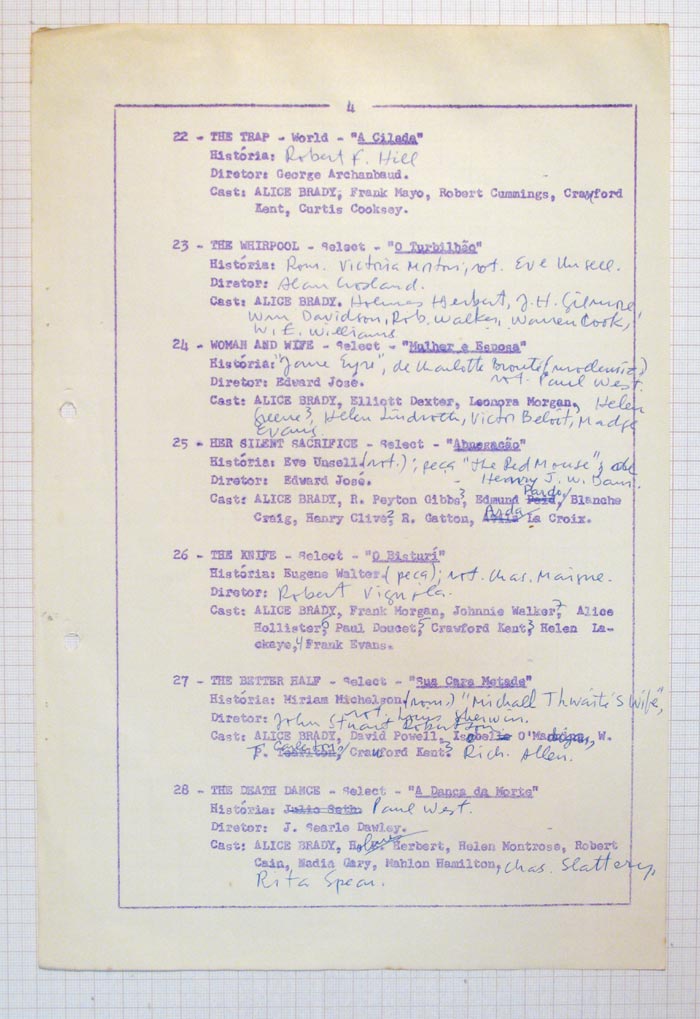 4
22 - THE TRAP - World - "A Cilada"
História: Robert F. Hill
Diretor: George Archanbaud.
Cast: ALICE BRADY, Frank Mayo, Robert Cummings, Crawford
Kent, Curtis Cooksey.
23 - THE WHIRPOOL - Select - "O Turbilhão"
História: Rom. Victoria Morton, rot. Eve Unsell.
Diretor: Alan Crosland.
Cast: ALICE BRADY. Holmes Herbert, J.H. Gilmore,
Wm Davidson, Rob. Walker, Warren Cook,
W. E. Williams
24 - WOMAN AND WIFE - Select - "Mulher e Esposa"
História: "Jane Eyre", de Charlotte Brontë (modeniz.)
rot. Paul West.
Diretor: Edward José.
Cast: ALICE BRADY, Elliott Dexter, Leonora Morgan, Helen
Greene, Helen Lindroth, Victor Benoit, Madge
Evans
25 - HER SILENT SACRIFICE - Select - "Abnegação"
História: Eve Unsell (rot.); peça "The Red Mouse", de
Henry J. W. Dam.
Diretor: Edward José.
Cast: ALICE BRADY, R. Peyton Gibbs, Edmund Pardo, Blanche
Craig, Henry Clive, R. Catton, Arda La Croix.
26 - THE KNIFE - Select - "O Bisturí"
História: Eugene Walter (peça); rot. Chas. Maigne.
Diretor: Robert Vignola.
Cast: ALICE BRADY, Frank Morgan, Johnnie Walker, 7 Alice
Hollister, 6 Paul Doucet, 5 Crawford Kent, 3 Helen La-
ckaye, 4 Frank Evans.
27 - THE BETTER HALF - Select - "Sua Cara Metade"
História: Miriam Michelson (rom.) "Michael Thwaite's Wife",
rot. Louis Sherwin.
Diretor: John Stuart Robertson
Cast: ALICE BRADY, David Powell, Isabelle O'Madigan, W.
T. Carleton, Crawford Kent. 3 Rich. Allen.
28 - THE DEATH DANCE - Select - "A Dança da Morte"
História: Paul West.
Diretor: J. Searle Dawley.
Cast: ALICE BRADY, Holmes Herbert, Helen Montrose, Robert
Cain, Nadia Gary, Mahlon Hamilton, Chas. Slattery,
Rita Spear.